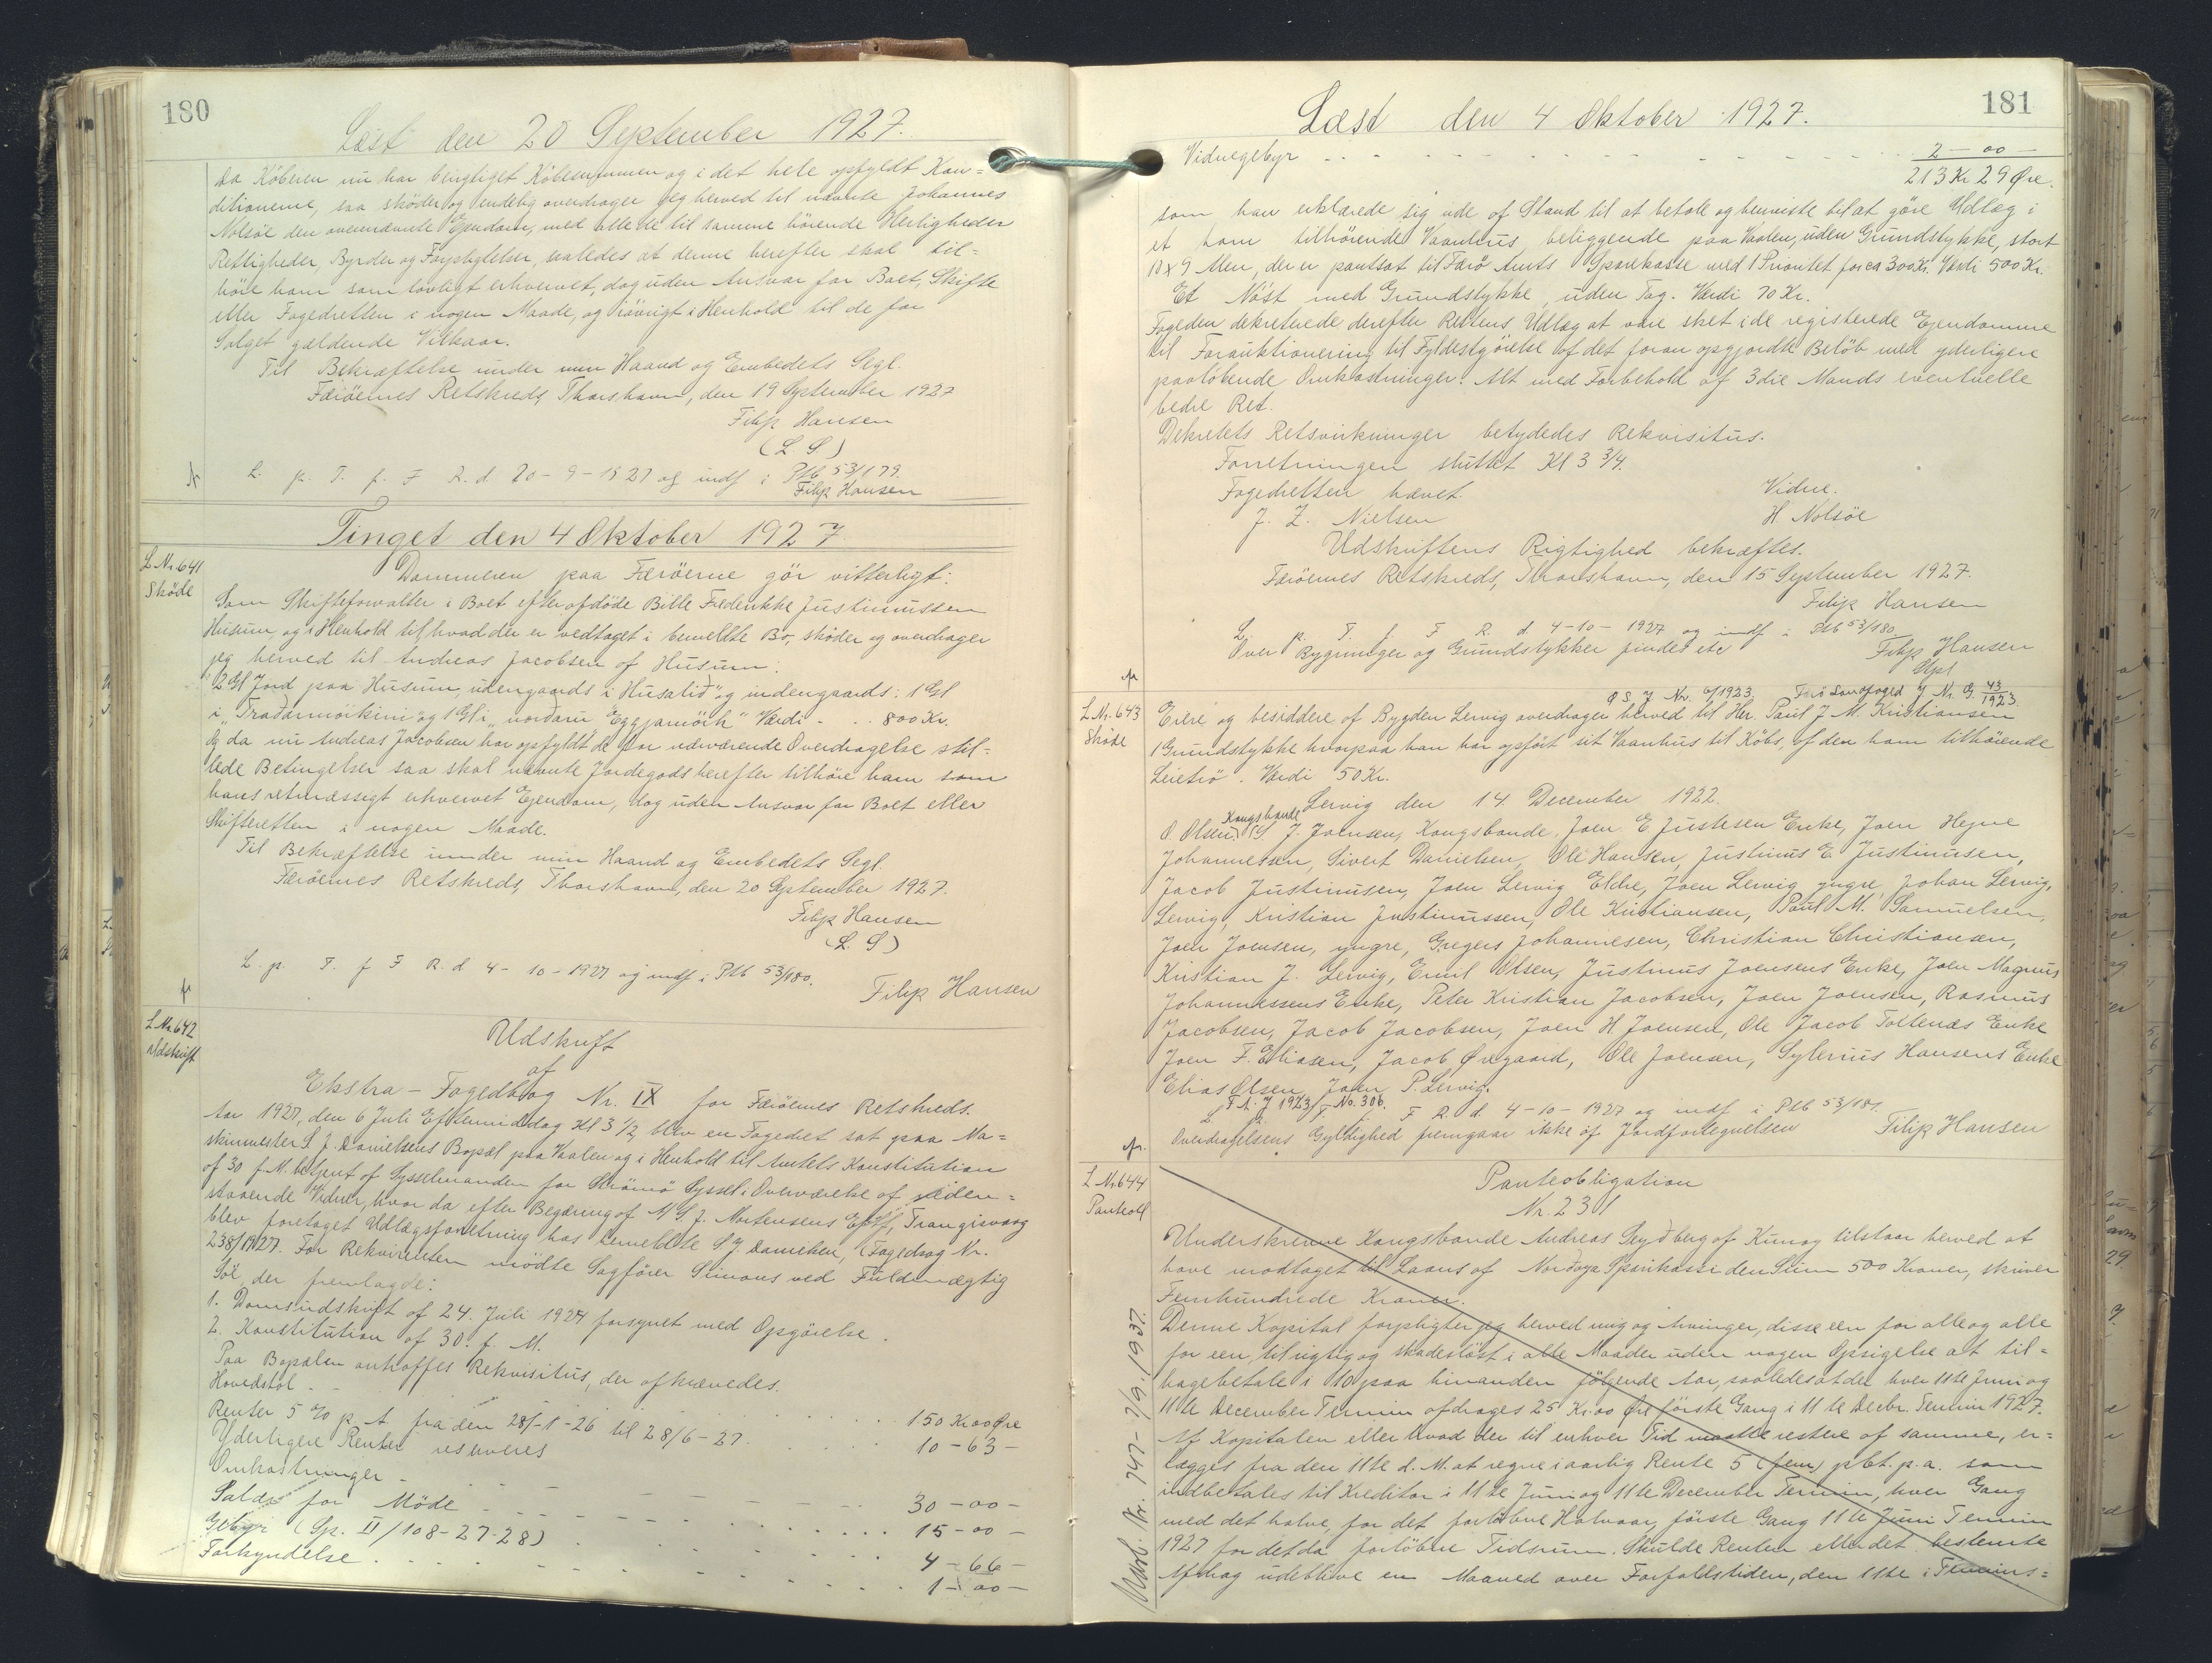 180
Læst den 20 September 1927.
da Köberen nu har berigtiget Köbesummen og i det hele opfyldt Kon=
ditionerne, saa sköder og endelig overdrager jeg herved til nævnte Johannes
Nolsöe den ovennævnte Ejendom, med alle de til samme hörende Herligheder
Rettigheder, Byrder og Forpligtelser, saaledes at denne herefter skal til=
höre ham som lovligt erhvervet, dog uden Ansvar for Boet, Skifte
eller Fogedretten i nogen Maade, og iövrigt i Henhold til de for
Salget gældende Vilkaar.
Til Bekræftelse under min Haand og Embedets Segl.
Færöernes Retskreds, Thorshavn, den 19 September 1927
Filip Hansen
(L S)
L. p. T. f. F R. d. 20-9-1927 og indf i Ptb 53/179.
Filip Hansen
Tinget den 4 Oktober 1927.
L Nr. 641
Sköde
Dommeren paa Færöerne gör vitterligt:
Som Skifteforvalter i Boet efter afdöde Bille Frederikke Justinussen
Husum, og i Henhold til hvad der er vedtaget i bemeldte Bo, sköder og overdrager
jeg herved til Andreas Jacobsen af Husum:
2 Gl Jord paa Husum, udengaards i "Husalið" og indengaards: 1 Gl
i "Traðarnöikini" og 1 Gl i "norðaru Eggjarnörk" Værdi - . . 800 Kr.
Og da nu Andreas Jacobsen har opfyldt de for nærværende Overdragelse stil=
lede Betingelser saa skal nævnte Jordegods herefter tilhöre ham som
hans retmæssigt erhvervet Ejendom, dog uden Ansvar for Boet eller
Skifteretten i nogen Maade.
Til Bekræftelse under min Haand og Embedets Segl.
Færöernes Retskreds, Thorshavn, den 20 September 1927.
Filip Hansen
(L. S)
L. p. T. f F R. d 4-10-1927 og indf i Ptb 53/180.
Filip Hansen
L Nr. 642
Udskrift
Udskrift
af
Ekstra-Fogedbog Nr. IX for Færöernes Retskreds.
Aar 1927, den 6 Juli Eftermiddag Kl 3 1/2, blev en Fogedret sat paa Ma=
skinmester S J. Danielsens Bopæl paa Vaalen og i Henhold til Amtets Konstitution
af 30 f. M. betjent af Sysselmanden for Strömö Syssel i Overværelse af neden=
staaende Vidner, hvor da efter Begæring af M S. J. Mortensens Eftf, Trangisvaag
blev foretaget Udlægsforretning hos bemeldte S. J. Danielsen, (Fogedsag Nr.
238/1927. For Rekvirenten mödte Sagförer Simons ved Fuldmægtig
söe, der fremlagde:
1. Domsudskrift af 24. Juli 1924 forsynet med Opgörelse.
2. Konstitution af 30. f. M.
Paa Bopælen antraffes Rekvisitus, der afkrævedes.
Hovedstol - - . . . 150 Kr. 00 Øre
Renter 5 % p. A fra den 28/-1-26 til 28/6-27. . . . 10-63-
Yderligere Renter reserveres
Omkostninger - . . . 30-00-
Salær for Möde - - . . . 15-00-
Gebyr (Sp. II/108-27-28) . . . 4-66-
Forkyndelse . . . 1-00-
181
Læst den 4 Oktober 1927.
Vidnegebyr - - - 2-00-
213 Kr 29 Øre.
som han erklærede sig ude af Stand til at betale og henviste til at göre Udlæg i
et ham tilhörende Vaanhus, beliggende paa Vaalen, uden Grundstykke, stort
10 x 9 Alen, der er pantsat til Færö Amts Sparekasse med 1 Prioritet for ca 300 Kr. Værdi 500 Kr.
Et Nöst med Grundstykke, uden Tag. Værdi 70 Kr.
Fogeden dekreterede derefter Rettens Udlæg at være sket i de registerede Ejendomme
til Forauktionering til Fyldestgörelse af det foran opgjordte Belöb med yderligere
paalöbende Omkostninger. Alt med Forbehold af 3die Mands eventuelle
bedre Ret.
Dekretets Retsvirkninger betydedes Rekvisitus.
Forretningen sluttet Kl 3 3/4.
Fogedretten hævet. Vidne.
J. Z. Nielsen H Nolsöe
Udskriftens Rigtighed bekræftes.
Færöernes Retskreds, Thorshavn, den 15 September 1927.
Filip Hansen
L. p. T. f. F R. d. 4-10-1927 og indf i Ptb 53/180.
Over Bygninger og Grundstykker findes etc
Filip Hansen
O S. J Nr. 6/1923. Færö Landfoged J Nr. G. 43/1923.
L Nr. 643
Sköde
Ejere og besiddere af Bygden Lervig overdrager herved til Hr. Paul J. M. Kristiansen
1 Grundstykke hvorpaa han har opfört sit Vaanhus til Köbs, af den ham tilhörende
Leietrö. Værdi 50 Kr.
Lervig den 14 December 1922.
O. Olsen Kongsbonde, S J. Joensen, Kongsbonde, Joen E. Justesen Enke, Joen Hejne
Johannessen, Sivert Danielsen, Ole Hansen, Justinus E Justinusen,
Jacob Justinusen, Joen Lervig Eldre, Joen Lervig yngre, Johan Lervig,
Lervig, Kristian Justinussen, Ole Kristiansen, Paul M. Samuelsen,
Joen Joensen, yngre, Gregers Johannesen, Christian Christiansen,
Kristian J. Lervig, Emil Olsen, Justinus Joensens Enke, Joen Magnus
Johannessens Enke, Peter Kristian Jacobsen, Joen Joensen, Rasmus
Jacobsen, Jacob Jacobsen, Joen H Joensen, Ole Jacob Toftenæs Enke
Joen F. Eliasen, Jacob Øregaard, Ole Joensen, Sylverius Hansens Enke
Elias Olsen, Joen P. Lervig.
F A. J 1923/ No. 306.
L. T. f. F R. d. 4-10-1927 og indf i Ptb 53/181.
Overdragelsens Gyldighed fremgaar ikke af Jordfortegnelsen
Filip Hansen
L Nr. 644
Panteobl
Panteobligation
Nr. 231
Underskrevne Kongsbonde Andreas Seyðberg af Kunoy tilstaar herved at
have modtaget til Laans af Norðoya Sparikassi den Sum 500 Kroner, skriver
Femhundrede Kroner.
Denne Kapital forpligter jeg herved mig og Arvinger, disse een for alle og alle
for een, til rigtig og skadeslöst i alle Maader uden nogen Opsigelse at til=
bagebetale i 10 paa hinanden fölgende Aar, saaledes at der hver 11te Juni og
11te December Termin afdrages 25 Kr. 00 Öre förste Gang i 11te Decbr. Termin 1927.
Af Kapitalen eller hvad der til enhver Tid maatte restere af samme, er=
lægges fra den 11te d. M. at regne i aarlig Rente 5 (fem) pCt. p. a. som
indbetales til Kreditor i 11te Juni og 11te December Termin, hver Gang
med det halve, for det forlöbne Halvaar, förste Gang 11te Juni Termin
1927 for det da forlöbne Tidsrum. Skulde Renten eller det bestemte
Afdrag udeblive en Maaned over Forfaldstiden, den 11te i Termins=